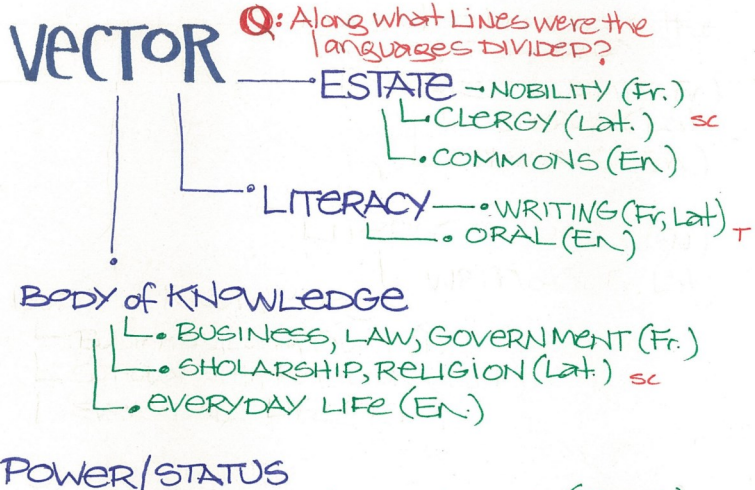 VECTOR
Q: Along what Lines were the
languages DIVIDED?
ESTATE → NOBILITY (Fr.)
• CLERGY (Lat.) SC
• COMMONS (En)
• LITERACY • WRITING (Fr, Lat)
• ORAL (En) T
BODY of KNOWLEDGE
• BUSINESS, LAW, GOVERNMENT (Fr.)
• SHOLARSHIP, RELIGION (Lat.) SC
• EVERYDAY LIFE (EN.)
POWER/STATUS